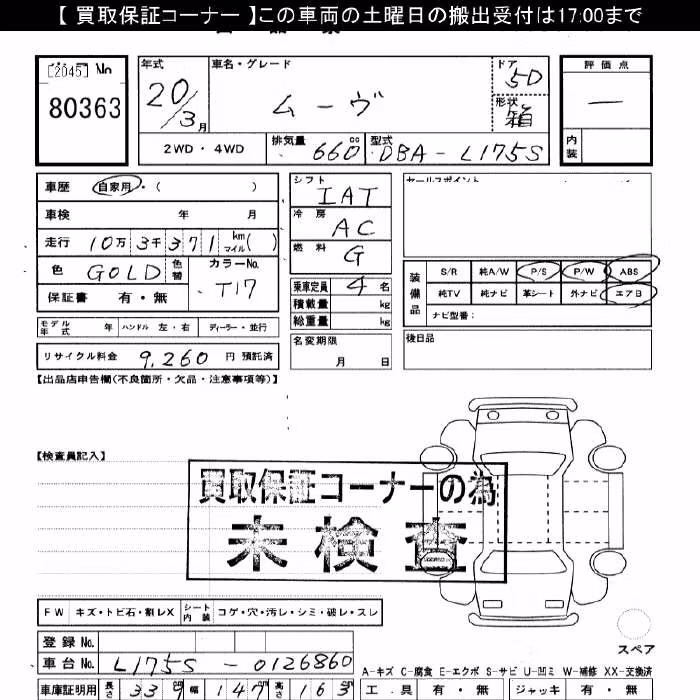 【 買取保証コーナー 】この車両の土曜日の搬出受付は17:00まで
[2045] No
80363
年式 20/3月
車名・グレード ムーヴ
ドア 5D
形状 箱
評価点 —
内装
2WD ・ 4WD
排気量 660 cc
型式 DBA - L175S
車歴 自家用 ・ ( )
車検 年 月
走行 10万 3千 3 7 1 km マイル ( )
色 GOLD 色替 カラーNo. T17
保証書 有 ・ 無
モデル年式 年 ハンドル 左 ・ 右 ディーラー ・ 並行
リサイクル料金 9,260 円 預託済
シフト IAT
冷房 AC
燃料 G
乗車定員 4 名
積載量 kg
総重量 kg
名変期限 月 日
セールスポイント
装備品
S/R 純A/W P/S P/W ABS
純TV 純ナビ 革シート 外ナビ エアB
ナビ型番:
後日品
【出品店申告欄(不良箇所・欠品・注意事項等)】
【検査員記入】
買取保証コーナーの為
未検査
FW キズ・トビ石・割レX シート内装 コゲ・穴・汚レ・シミ・破レ・スレ
登録 No.
車台 No. L175S - 0126860
車庫証明用 長さ 339 幅 147 高さ 163
スペア
A-キズ C-腐食 E-エクボ S-サビ U-凹ミ W-補修 XX-交換済
工具 有 ・ 無 ジャッキ 有 ・ 無